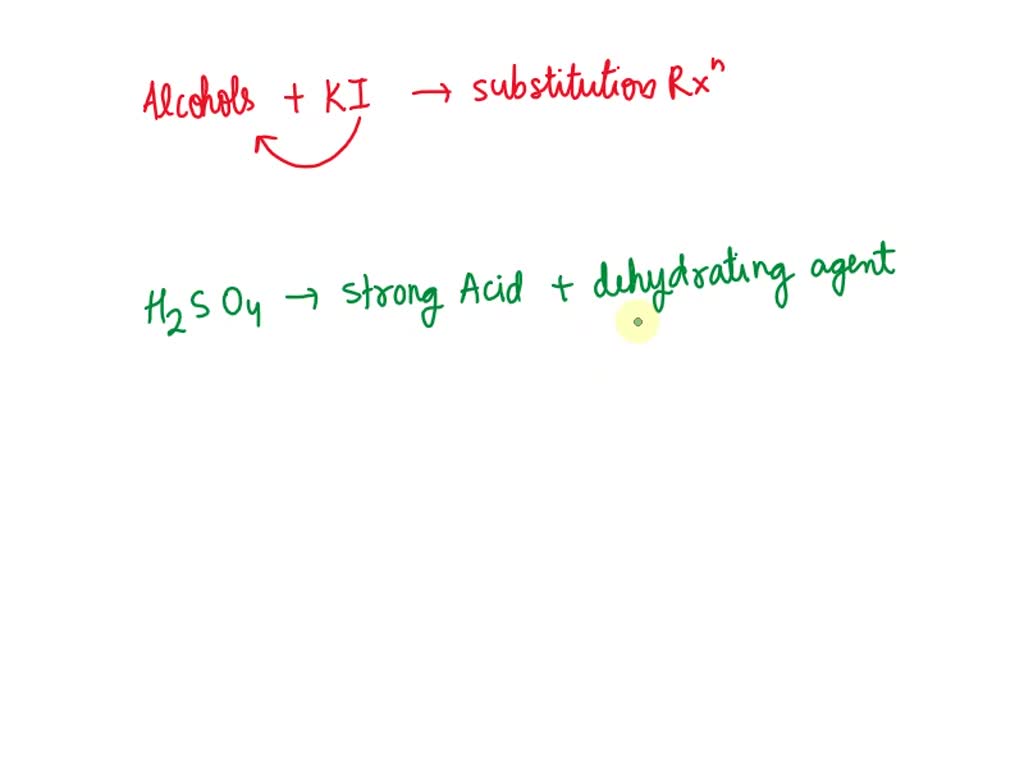 Alcohols + KI → substitution Rxⁿ
H₂SO₄ → strong Acid + dehydrating agent